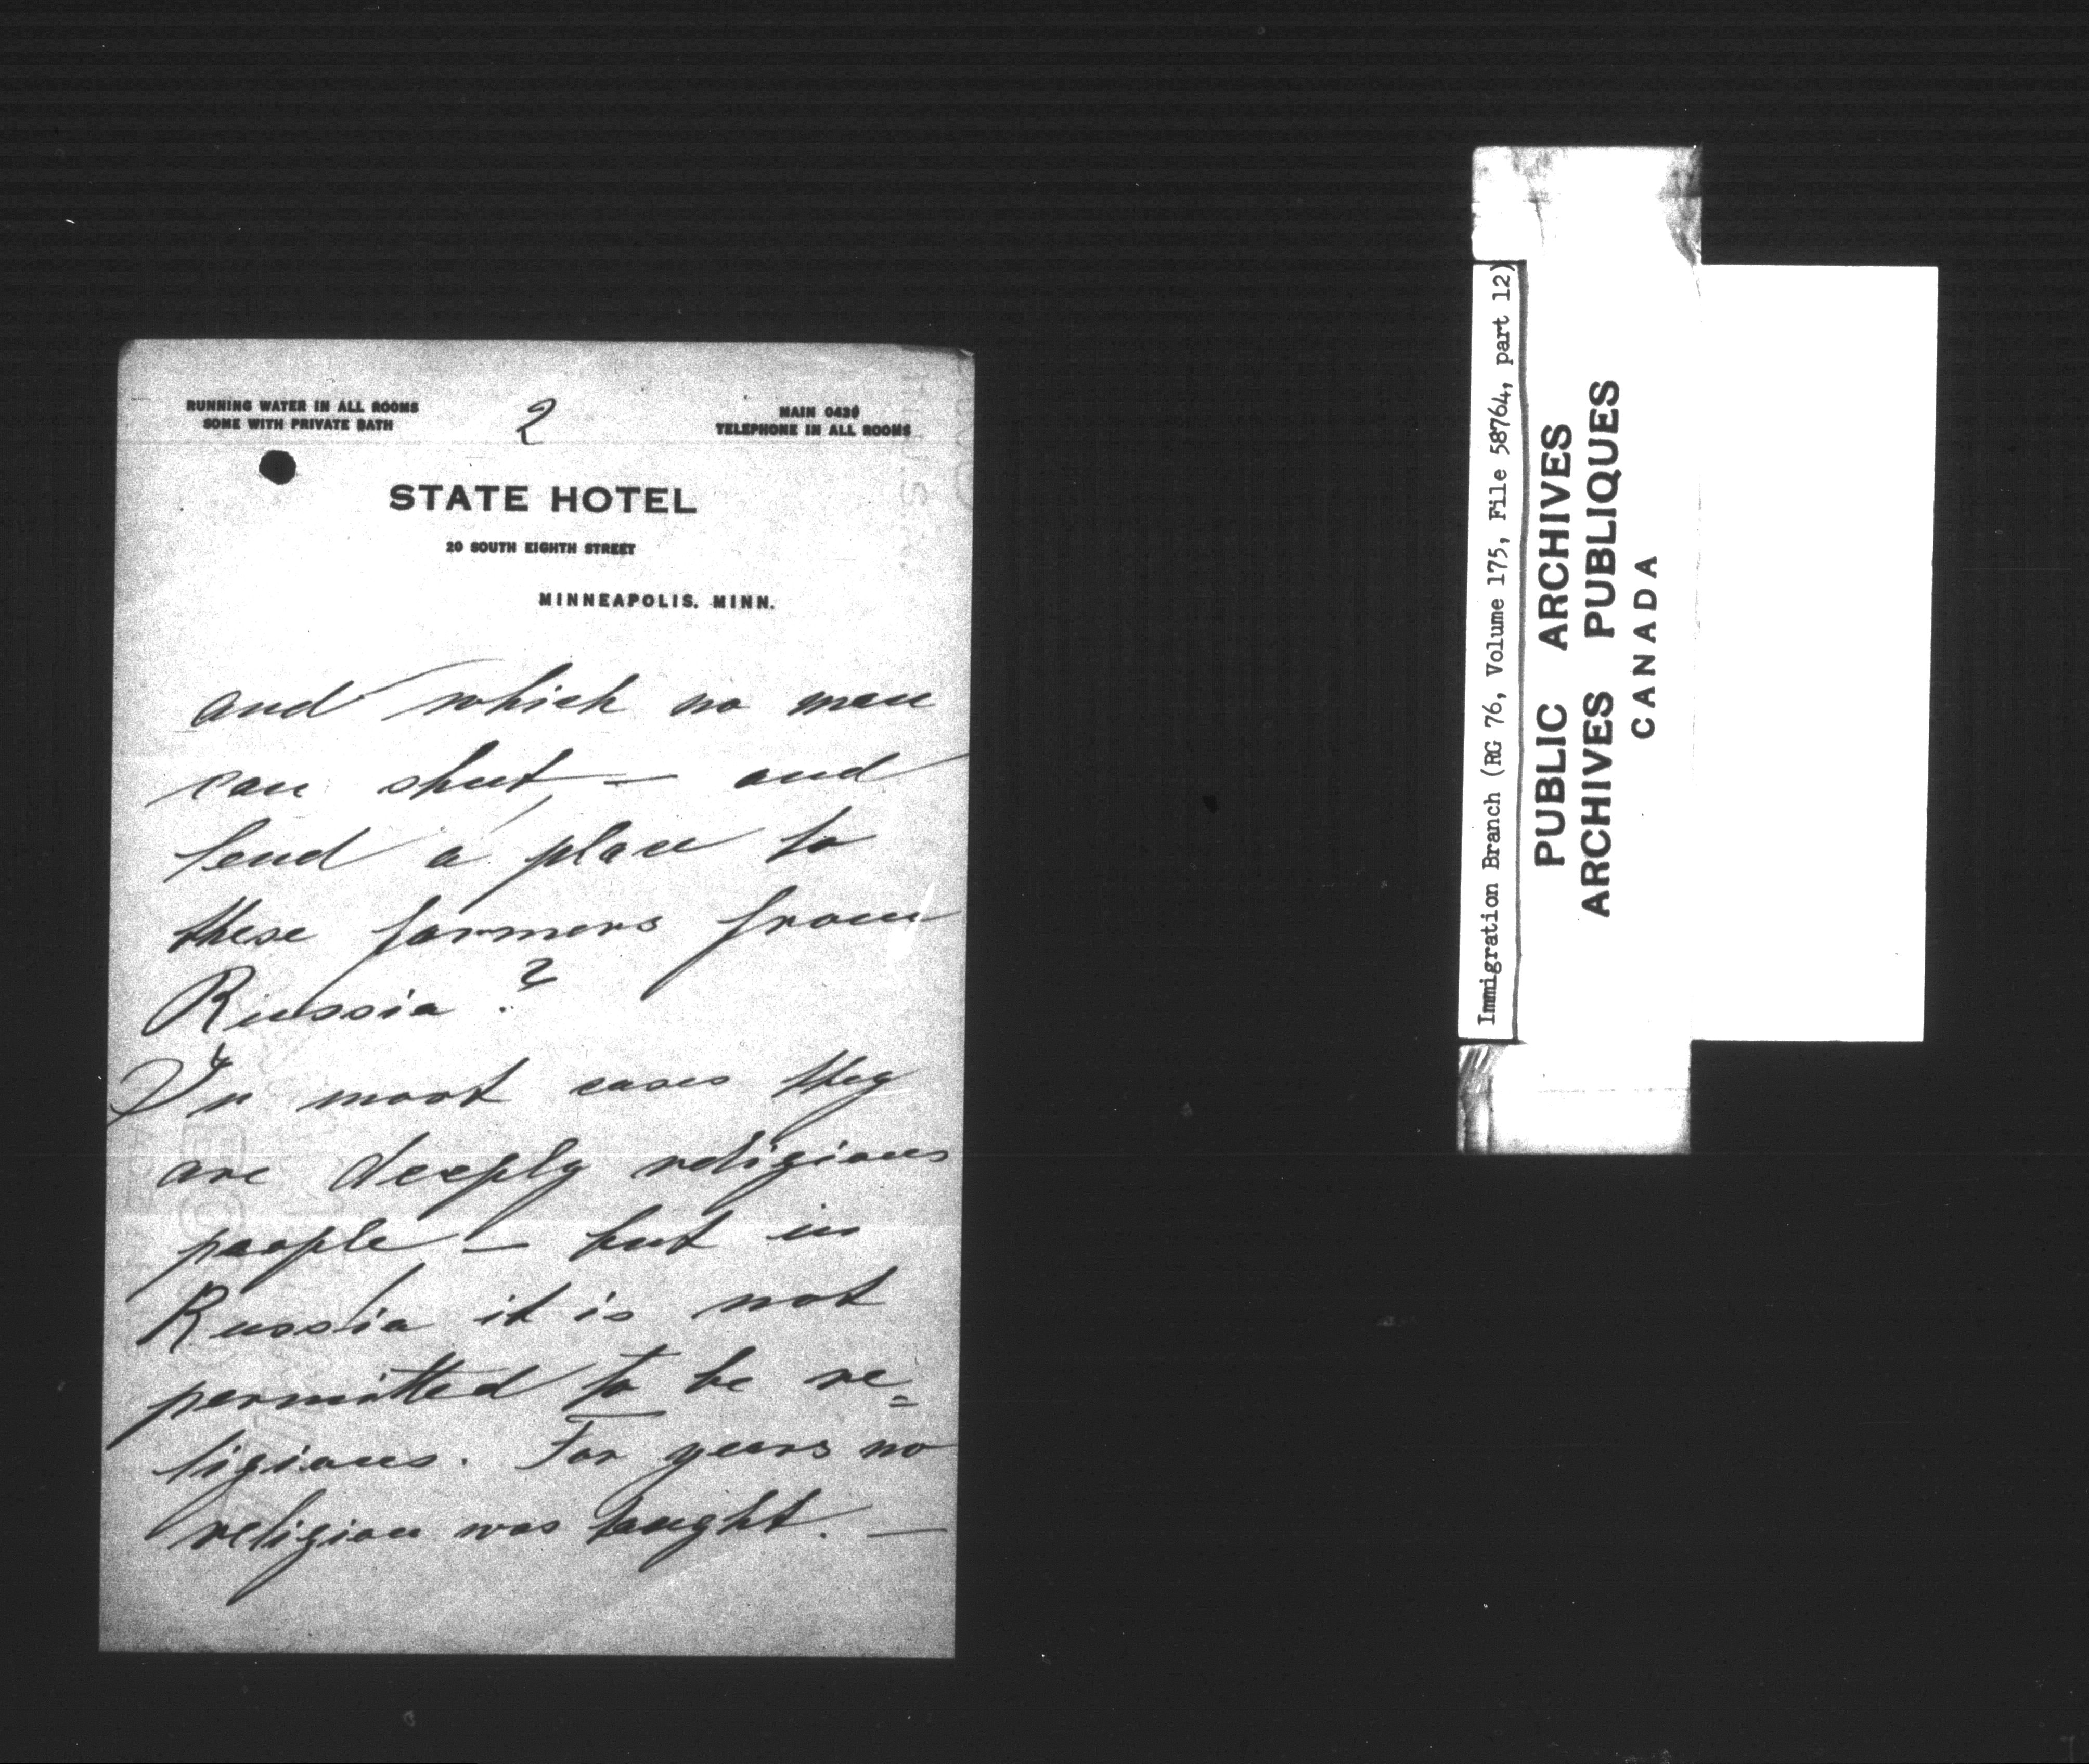 RUNNING WATER IN ALL ROOMS
SOME WITH PRIVATE BATH
2
MAIN 0430
TELEPHONE IN ALL ROOMS
STATE HOTEL
20 SOUTH EIGHTH STREET
MINNEAPOLIS. MINN.
and which no man
can shut — and
lend a place to
these farmers from
Russia ?
In most cases they
are deeply religious
people — but in
Russia it is not
permitted to be re=
ligious. For years no
religion was taught. —
Immigration Branch (RG 76, Volume 175, File 58764, part 12)
PUBLIC ARCHIVES
ARCHIVES PUBLIQUES
CANADA